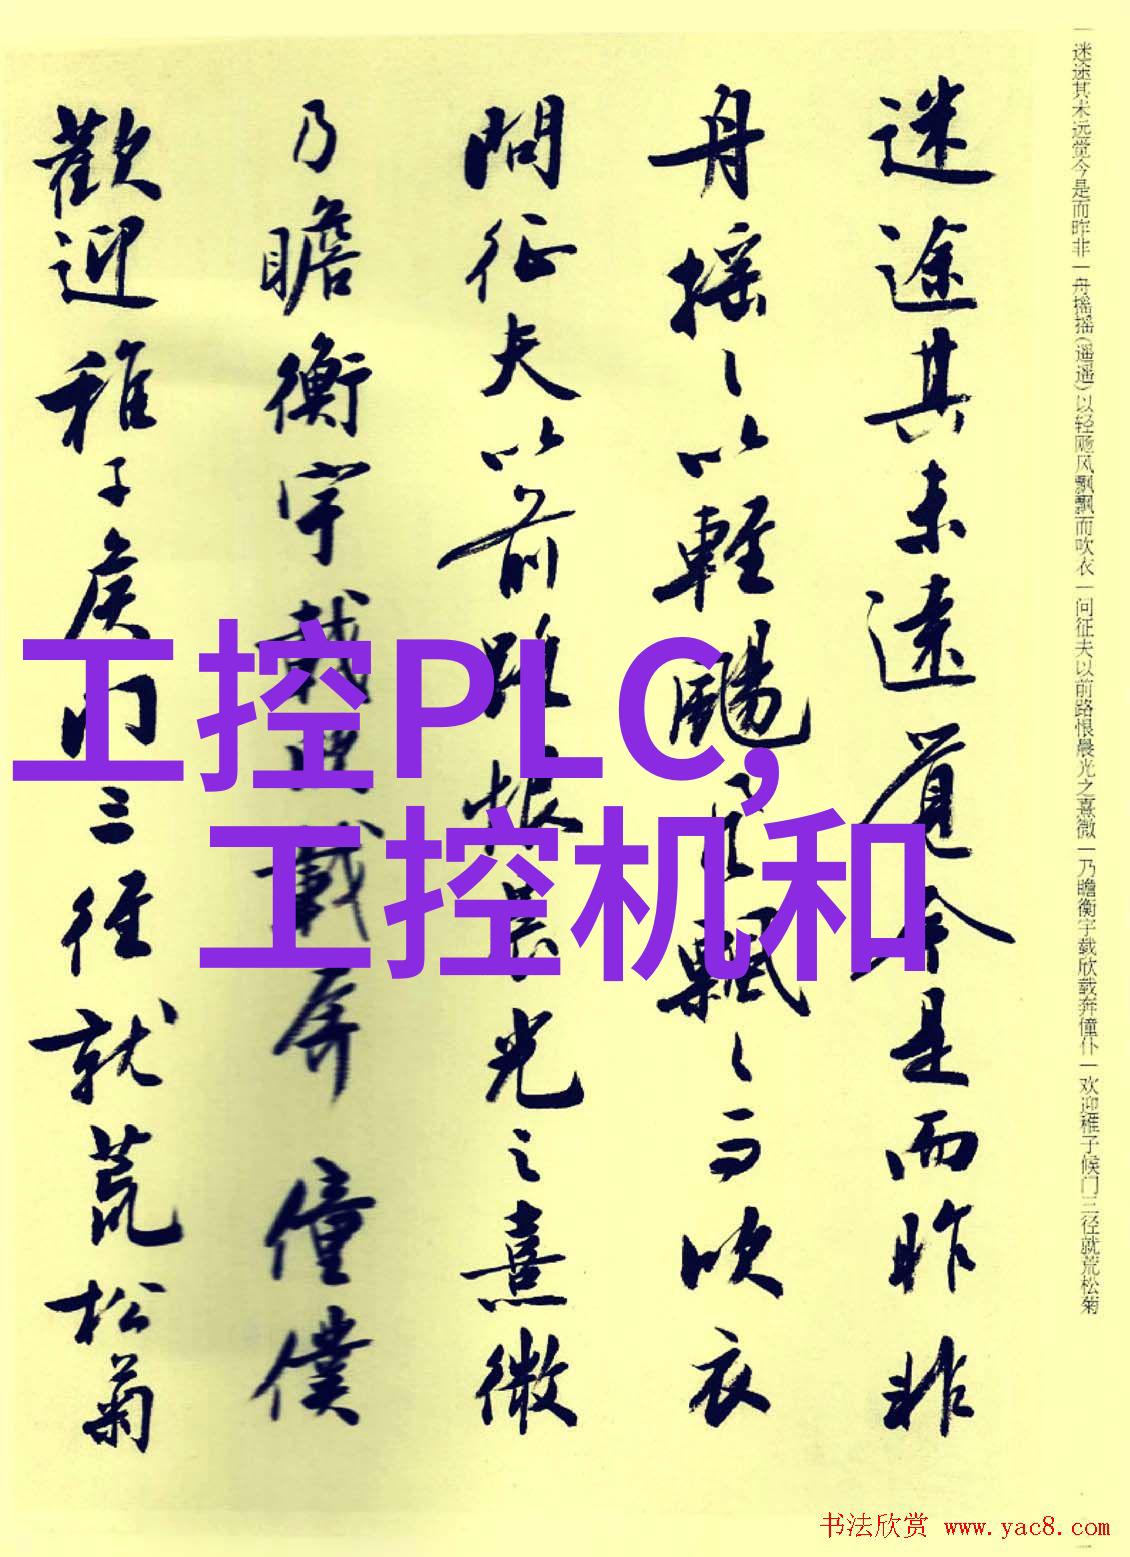 迷途其未遠覺今是而昨非
舟摇〻以輕颺風飄〻而吹衣
問征夫以前路恨晨光之熹微
乃瞻衡宇載欣載奔僮僕
歡迎稚子候门三径就荒松菊
一迷途其未远觉今是而昨非一舟摇摇(遥遥)以轻飏风飘飘而吹衣一问征夫以前路恨晨光之熹微一乃瞻衡宇载欣载奔僮仆一欢迎稚子候门三径就荒松菊
工控PLC,
工控机和
书法欣赏 www.yac8.com